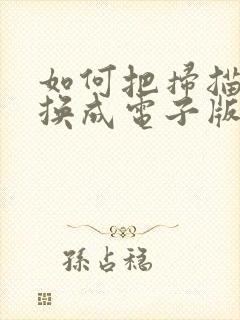 如何把掃描
換成電子版
孫占稳